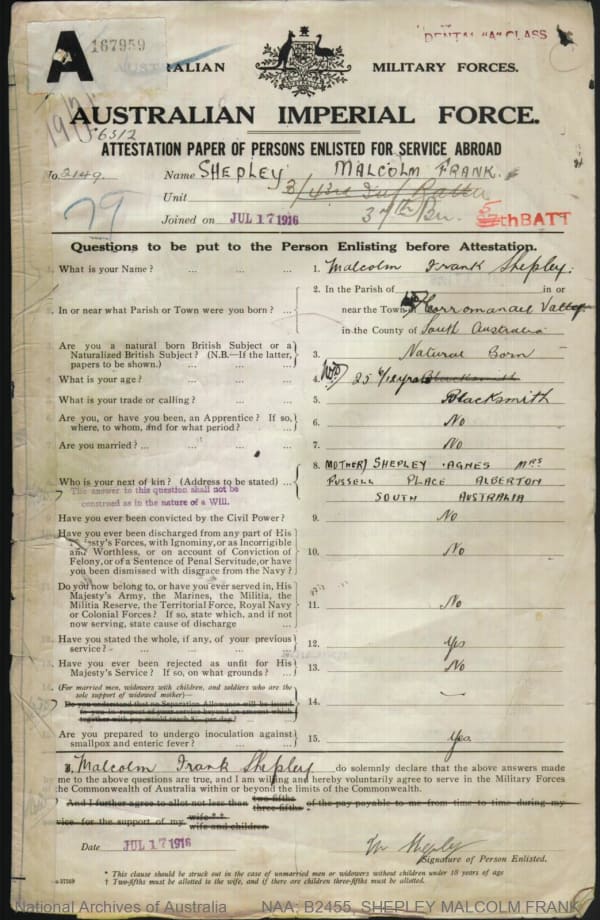 A 167959
DENTAL "A" CLASS
AUSTRALIAN MILITARY FORCES.
AUSTRALIAN IMPERIAL FORCE.
6512
ATTESTATION PAPER OF PERSONS ENLISTED FOR SERVICE ABROAD
No. 2149. Name SHEPLEY MALCOLM FRANK.
Unit 3/43rd Inf Battn
79 Joined on JUL 17 1916 37th/Bn. 5thBATT
Questions to be put to the Person Enlisting before Attestation.
What is your Name? ... ... ... 1. Malcolm Frank Shepley.
2. In the Parish of in or
In or near what Parish or Town were you born? ... near the Town of Corromandel Valley
in the County of South Australia
Are you a natural born British Subject or a
Naturalized British Subject? (N.B.—If the latter,
papers to be shown.) ... ... 3. Natural Born
What is your age? ... ... ... 4. 25 years Blacksmith
What is your trade or calling? ... ... 5 Blacksmith
Are you, or have you been, an Apprentice? If so,
where, to whom, and for what period? ... 6. No
Are you married? ... ... ... 7. No
8 MOTHER) SHEPLEY AGNES MRS
Who is your next of kin? (Address to be stated) ... RUSSELL PLACE ALBERTON
The answer to this question shall not be SOUTH AUSTRALIA
construed as in the nature of a Will.
Have you ever been convicted by the Civil Power? 9. No
Have you ever been discharged from any part of His
Majesty's Forces, with Ignominy, or as Incorrigible
and Worthless, or on account of Conviction of 10. No
Felony, or of a Sentence of Penal Servitude, or have
you been dismissed with disgrace from the Navy?
Do you now belong to, or have you ever served in, His
Majesty's Army, the Marines, the Militia, the
Militia Reserve, the Territorial Force, Royal Navy 11. No
or Colonial Forces? If so, state which, and if not
now serving, state cause of discharge ...
Have you stated the whole, if any, of your previous
service? - ... ... ... ... 12. Yes
Have you ever been rejected as unfit for His
Majesty's Service? If so, on what grounds? ... 13. No
(For married men, widowers with children, and soldiers who are the
sole support of widowed mother)—
Do you understand that no Separation Allowance will be issued 14. —
to you in respect of your service beyond an amount which
together with pay would reach 8s. per day?
Are you prepared to undergo inoculation against
smallpox and enteric fever? ... ... 15. Yes
I, Malcolm Frank Shepley do solemnly declare that the above answers made
me to the above questions are true, and I am willing and hereby voluntarily agree to serve in the Military Forces
the Commonwealth of Australia within or beyond the limits of the Commonwealth.
And I further agree to allot not less than two-fifths three-fifths of the pay payable to me from time to time during my
service for the support of my wife ** wife and children
Date JUL 17 1916 M Shepley
Signature of Person Enlisted.
* This clause should be struck out in the case of unmarried men or widowers without children under 18 years of age
† Two-fifths must be allotted to the wife, and if there are children three-fifths must be allotted.
National Archives of Australia NAA: B2455, SHEPLEY MALCOLM FRANK